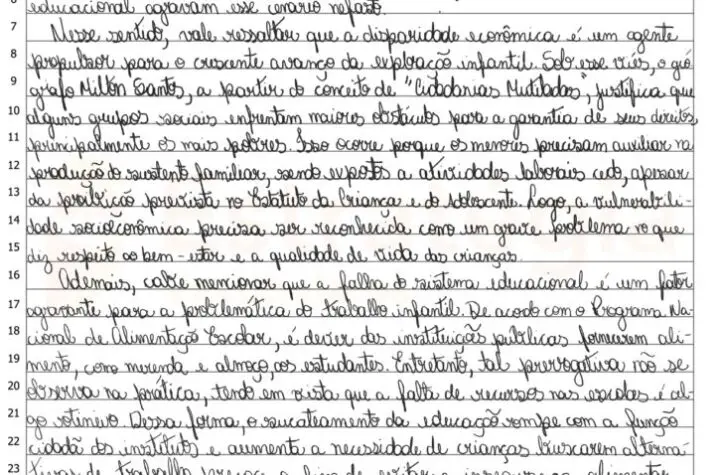 6 educacional agravam esse cenário nefasto.
7 Nesse sentido, vale ressaltar que a disparidade econômica é um agente
8 propulsor para o crescente avanço da exploração infantil. Sob esse viés, o geó
9 grafo Milton Santos, a partir do conceito de "Cidadanias Mutiladas", justifica que
10 alguns grupos sociais enfrentam maiores obstáculos para a garantia de seus direitos,
11 principalmente os mais pobres. Isso ocorre porque os menores precisam auxiliar na
12 produção do sustento familiar, sendo expostos a atividades laborais cedo, apesar
13 da proibição prevista no Estatuto da Criança e do Adolescente. Logo, a vulnerabili-
14 dade socioeconômica precisa ser reconhecida como um grave problema no que
15 diz respeito ao bem-estar e a qualidade de vida das crianças.
16 Ademais, cabe mencionar que a falha do sistema educacional é um fator
17 agravante para a problemática do trabalho infantil. De acodo com o Programa Na-
18 cional de Alimentação Escolar, é dever das instituições públicas fornecerem ali-
19 mento, como merenda e almoço, aos estudantes. Entretanto, tal prerrogativa não se
20 observa na prática, tendo em vista que a falta de recursos nas escolas é al-
21 go rotineiro. Dessa forma, o sucateamento da educação rompe com a função
22 cidadã dos institutos e aumenta a necessidade de crianças buscarem alterna-
23 tivas de trabalho precoce a fim de evitar a insegurança alimentar